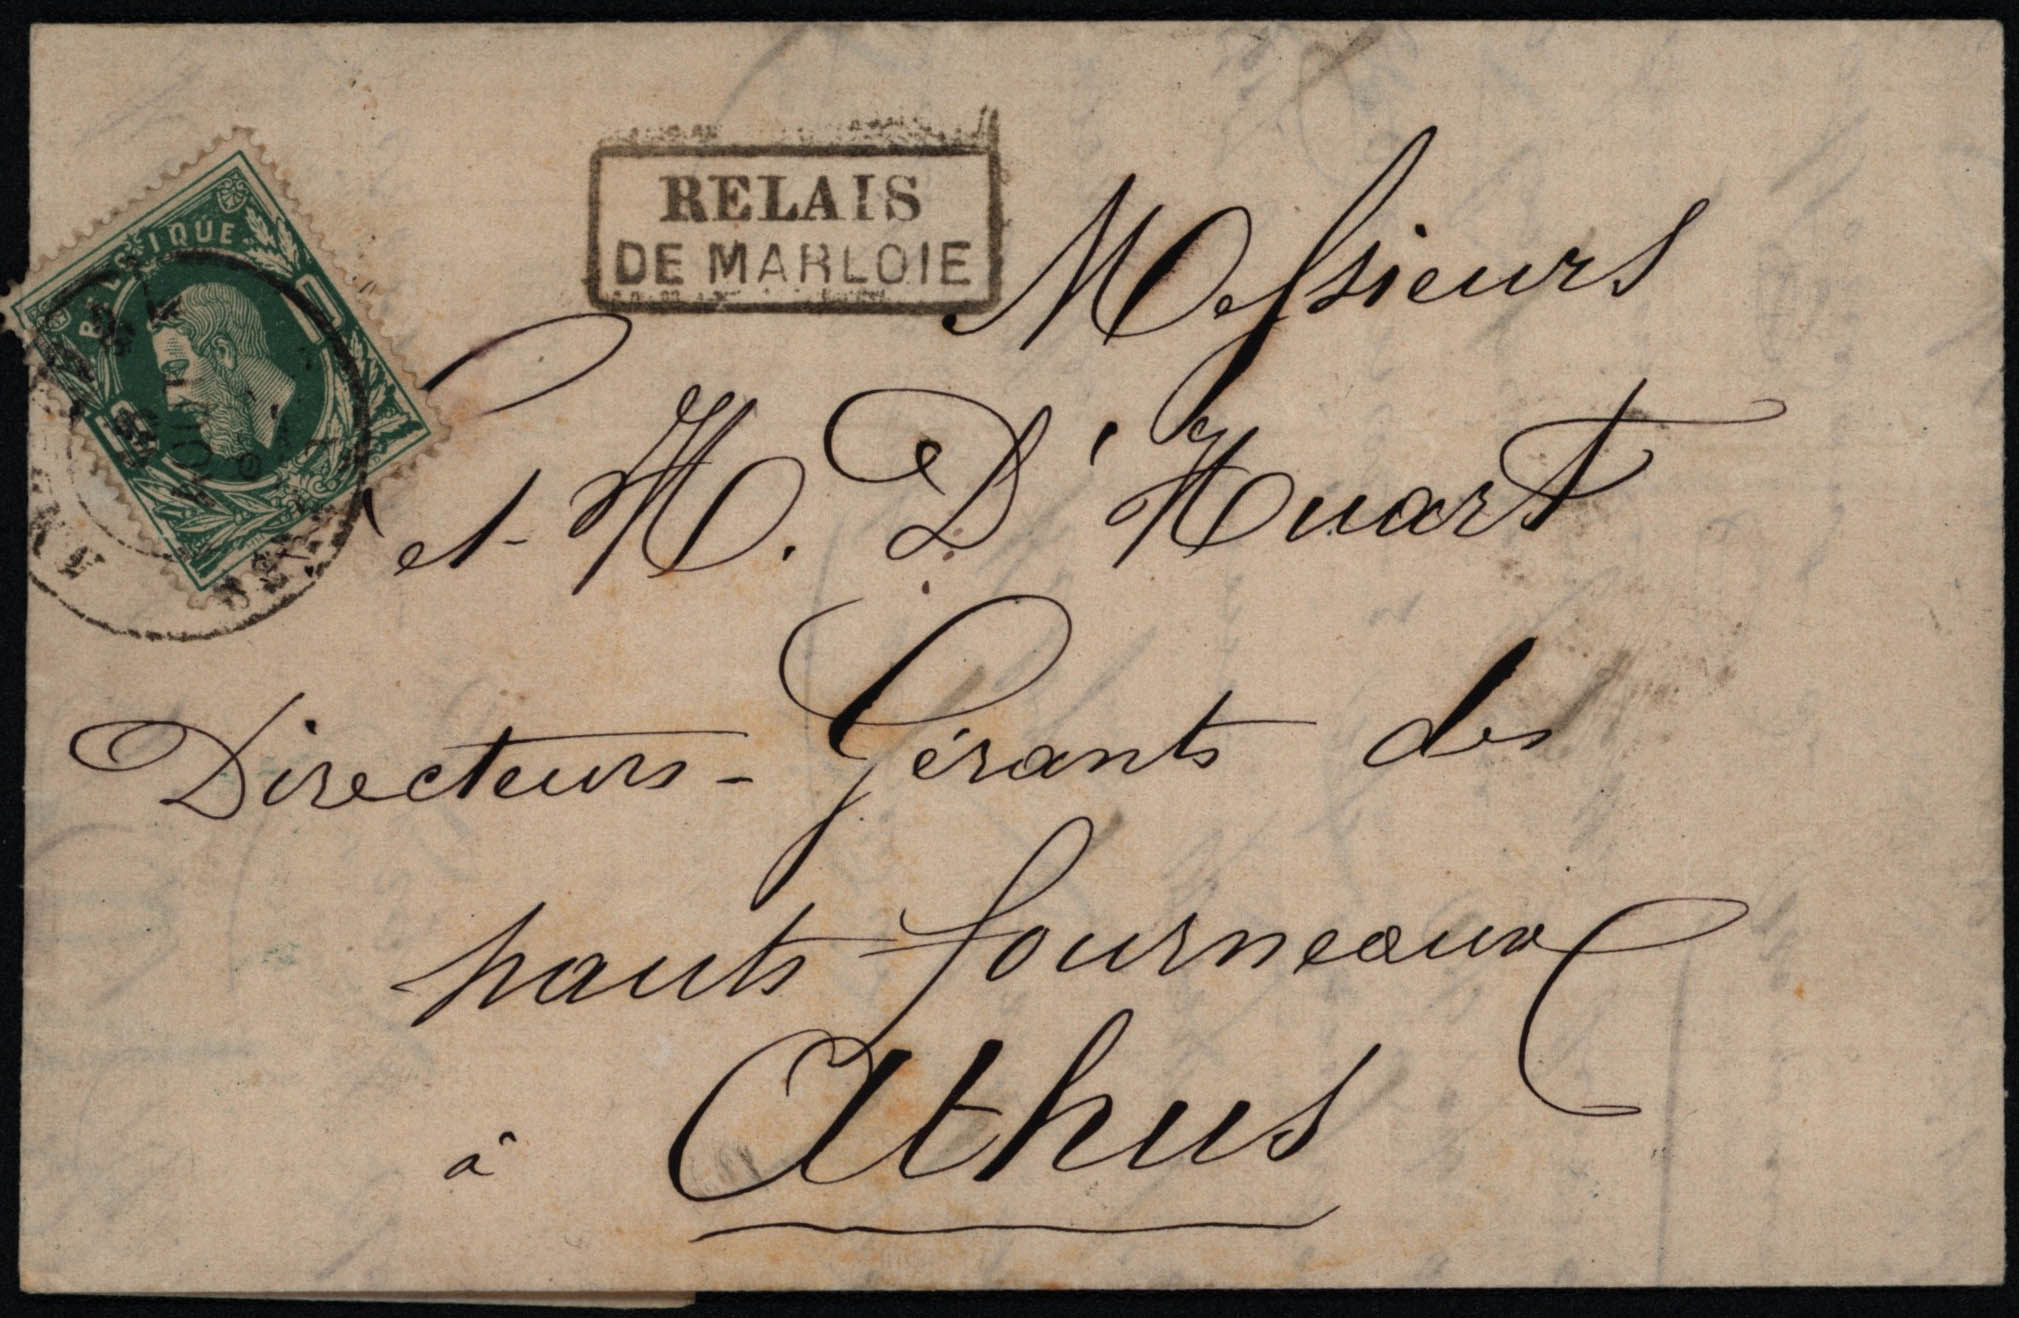 BELGIQUE
RELAIS
DE MARLOIE
Messieurs
et H. D'Huart
Directeurs-Gérants des
hauts fourneaux
à Athus